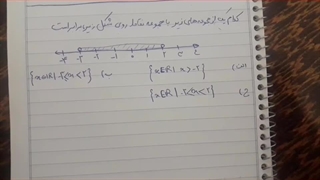 کدام یک از مجموعه‌های زیر با مجموعه نقاط روی شکل زیر برابر است
-۳ -۲ -۱ ۰ ۱ ۲ ۳
الف) {x∈R | x>-۲} ب) {x∈R | -۲≤x<۲}
ج) {x∈R | -۲≤x<۲}